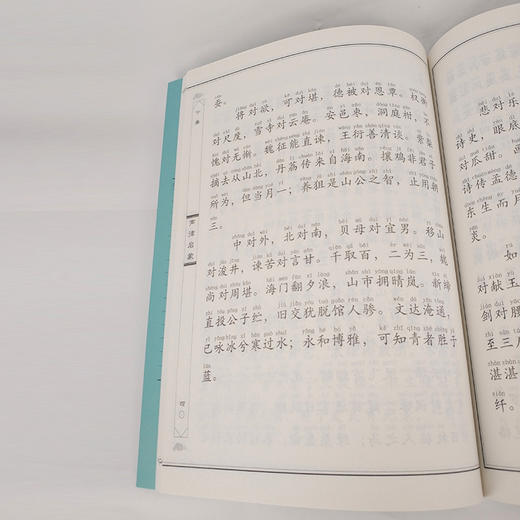 蚕。
将对欲，可对堪，德被对恩覃。权衡
对尺度，雪寺对云庵。安邑枣，洞庭柑，不
愧对无惭。魏征能直谏，王衍善清谈。紫梨
摘去从山北，丹荔传来自海南。攘鸡非君子
所为，但当月一；养狙是山公之智，止用朝
三。
中对外，北对南，贝母对宜男。移山
对浚井，谏苦对言甘。千取百，二为三，魏
尚对周堪。海门翻夕浪，山市拥晴岚。新缔
直投公子纻，旧交犹脱馆人骖。文达淹通，
已咏冰兮寒过水；永和博雅，可知青者胜于
蓝。
下卷
声律启蒙
悲对乐
诗史，眼底
对瓜甜。
诗传孟德
东生而月
炎。
如
对献玉
剑对腰
至三尸
湛湛
纤。